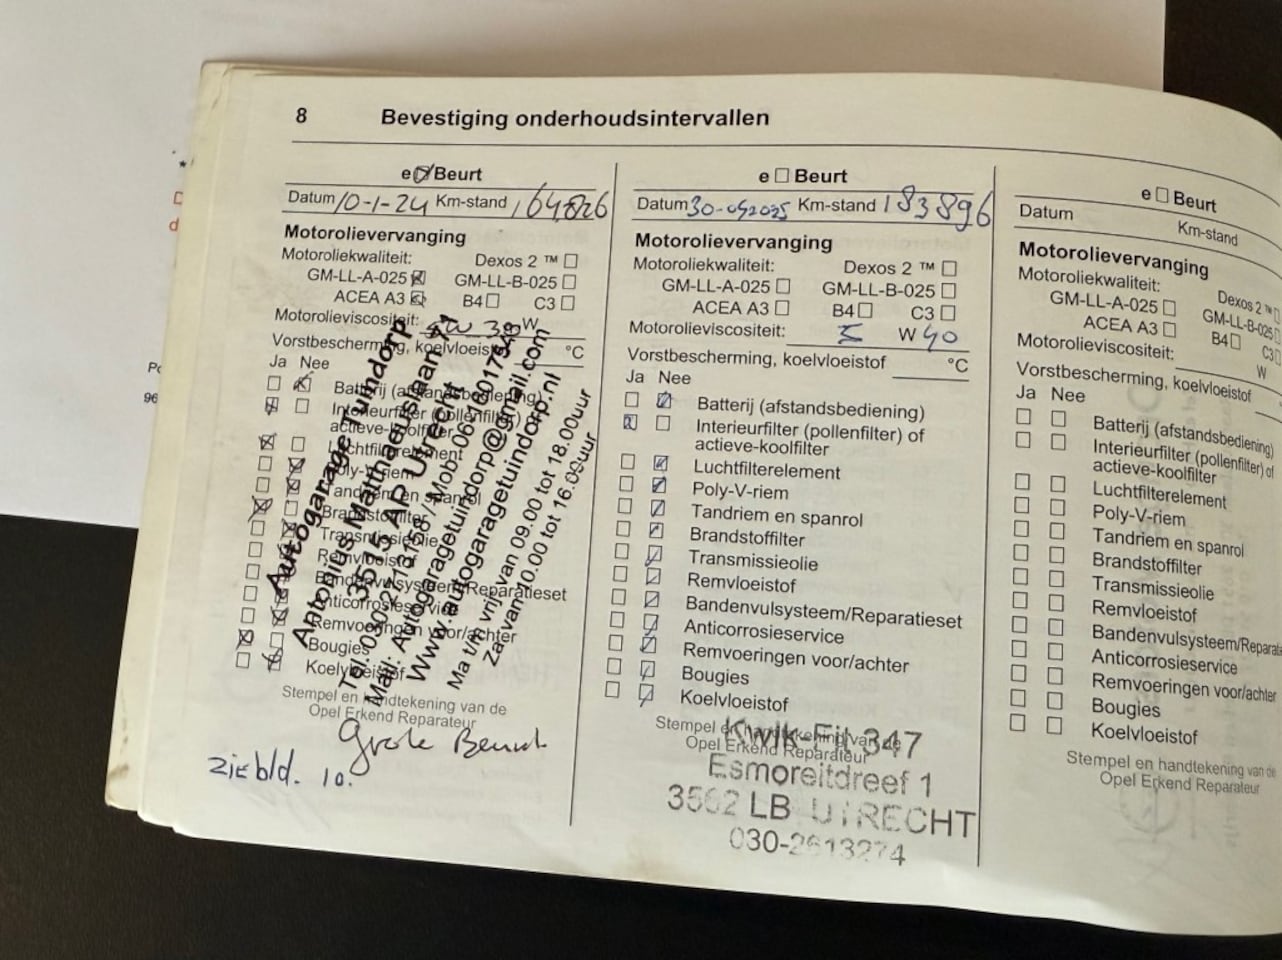 8 Bevestiging onderhoudsintervallen
e Beurt
Datum 10-1-24 Km-stand 164826
Motorolievervanging
Motoroliekwaliteit: Dexos 2 ™
GM-LL-A-025 GM-LL-B-025
ACEA A3 B4 C3
Motorolieviscositeit: 5W 30 W
Vorstbescherming, koelvloeistof °C
Ja Nee
Batterij (afstandsbediening)
Interieurfilter (pollenfilter) of
actieve-koolfilter
Luchtfilterelement
Poly-V-riem
Tandriem en spanrol
Brandstoffilter
Transmissieolie
Remvloeistof
Bandenvulsysteem/Reparatieset
Anticorrosieservice
Remvoeringen voor/achter
Bougies
Koelvloeistof
Autogarage Tuindorp
Antonius Matthaeuslaan
3515 AP Utrecht
Mail: Autogaragetuindorp@gmail.com
Www.autogaragetuindorp.nl
Ma t/m vrij van 09.00 tot 18.00uur
Za van 10.00 tot 16.00uur
Stempel en handtekening van de
Opel Erkend Reparateur
Grote Beurt
zie bld. 10.
e Beurt
Datum 30-042025 Km-stand 183896
Motorolievervanging
Motoroliekwaliteit: Dexos 2 ™
GM-LL-A-025 GM-LL-B-025
ACEA A3 B4 C3
Motorolieviscositeit: 5 W 40
Vorstbescherming, koelvloeistof °C
Ja Nee
Batterij (afstandsbediening)
Interieurfilter (pollenfilter) of
actieve-koolfilter
Luchtfilterelement
Poly-V-riem
Tandriem en spanrol
Brandstoffilter
Transmissieolie
Remvloeistof
Bandenvulsysteem/Reparatieset
Anticorrosieservice
Remvoeringen voor/achter
Bougies
Koelvloeistof
Stempel en handtekening van de
Opel Erkend Reparateur
Kwik-Fit 347
Esmoreitdreef 1
3562 LB UTRECHT
030-2613274
e Beurt
Datum Km-stand
Motorolievervanging
Motoroliekwaliteit: Dexos 2 ™
GM-LL-A-025 GM-LL-B-025
ACEA A3 B4 C3
Motorolieviscositeit: W
Vorstbescherming, koelvloeistof
Ja Nee
Batterij (afstandsbediening)
Interieurfilter (pollenfilter) of
actieve-koolfilter
Luchtfilterelement
Poly-V-riem
Tandriem en spanrol
Brandstoffilter
Transmissieolie
Remvloeistof
Bandenvulsysteem/Repara
Anticorrosieservice
Remvoeringen voor/achter
Bougies
Koelvloeistof
Stempel en handtekening van de
Opel Erkend Reparateur